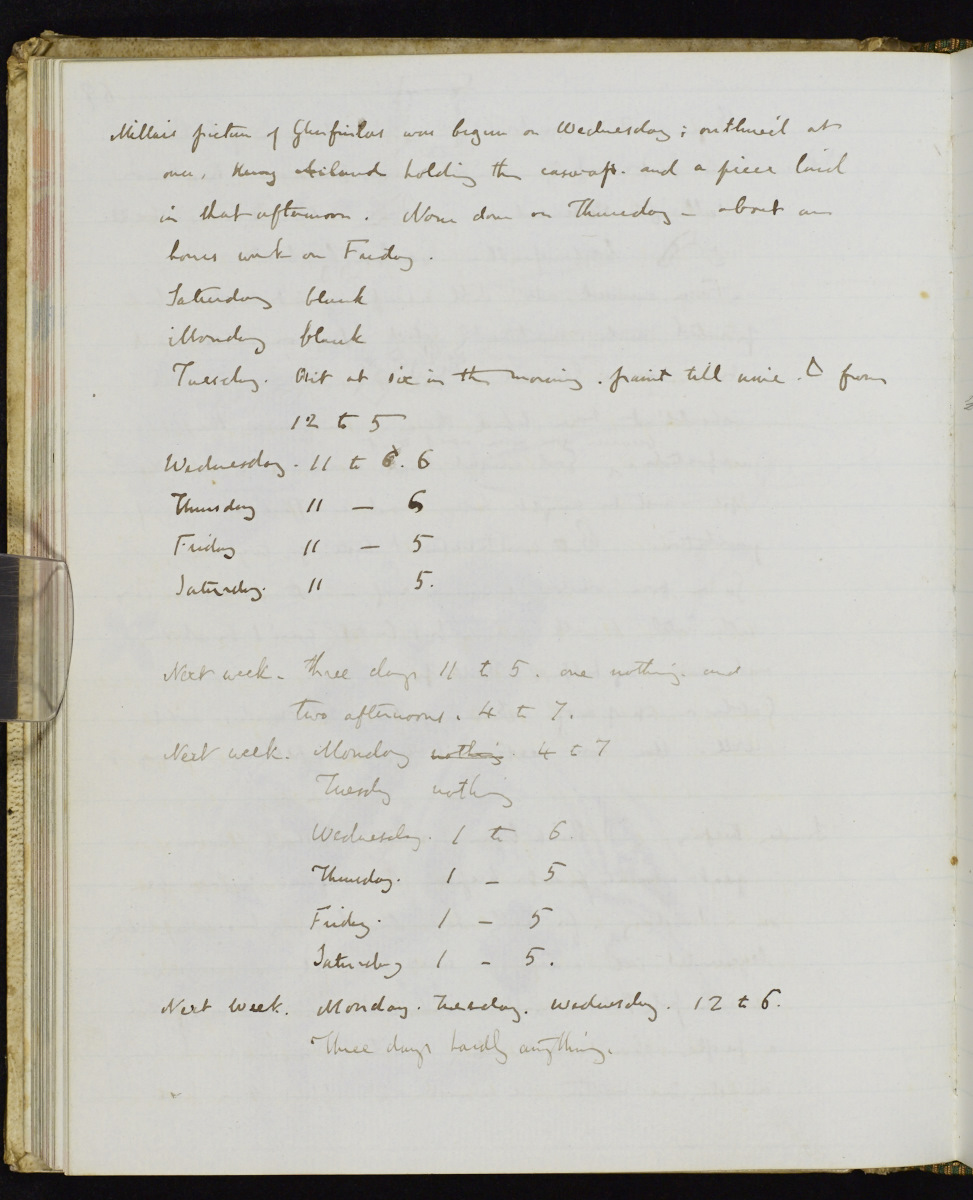 Millais picture of Glenfinlas was begun on Wednesday; outlined at
once, Henry Acland holding the canvass. and a piece laid
in that afternoon. None done on Thursday – about an
hours work on Friday.
Saturday blank
Monday blank
Tuesday. Out at six in the morning. paint till nine. from
12 to 5
Wednesday. 11 to 6. 6
Thursday 11 – 6
Friday 11 – 5
Saturday. 11 5.
Next week. three days 11 to 5. one nothing. and
two afternoons. 4 to 7.
Next week. Monday nothing. 4 to 7
Tuesday nothing
Wednesday. 1 to 6.
Thursday. 1 – 5
Friday. 1 – 5
Saturday 1 – 5.
Next Week. Monday. Tuesday. Wednesday. 12 to 6.
Three days hardly anything.